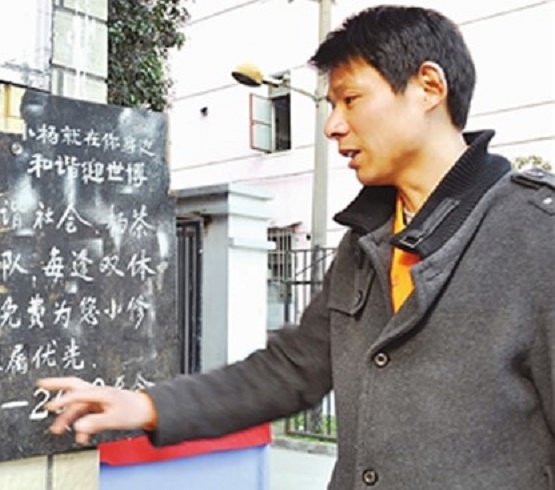 小杨就在你身边
和谐迎世博
谐社会、
队,每逢双休
免费为您小修
属优先.
—2